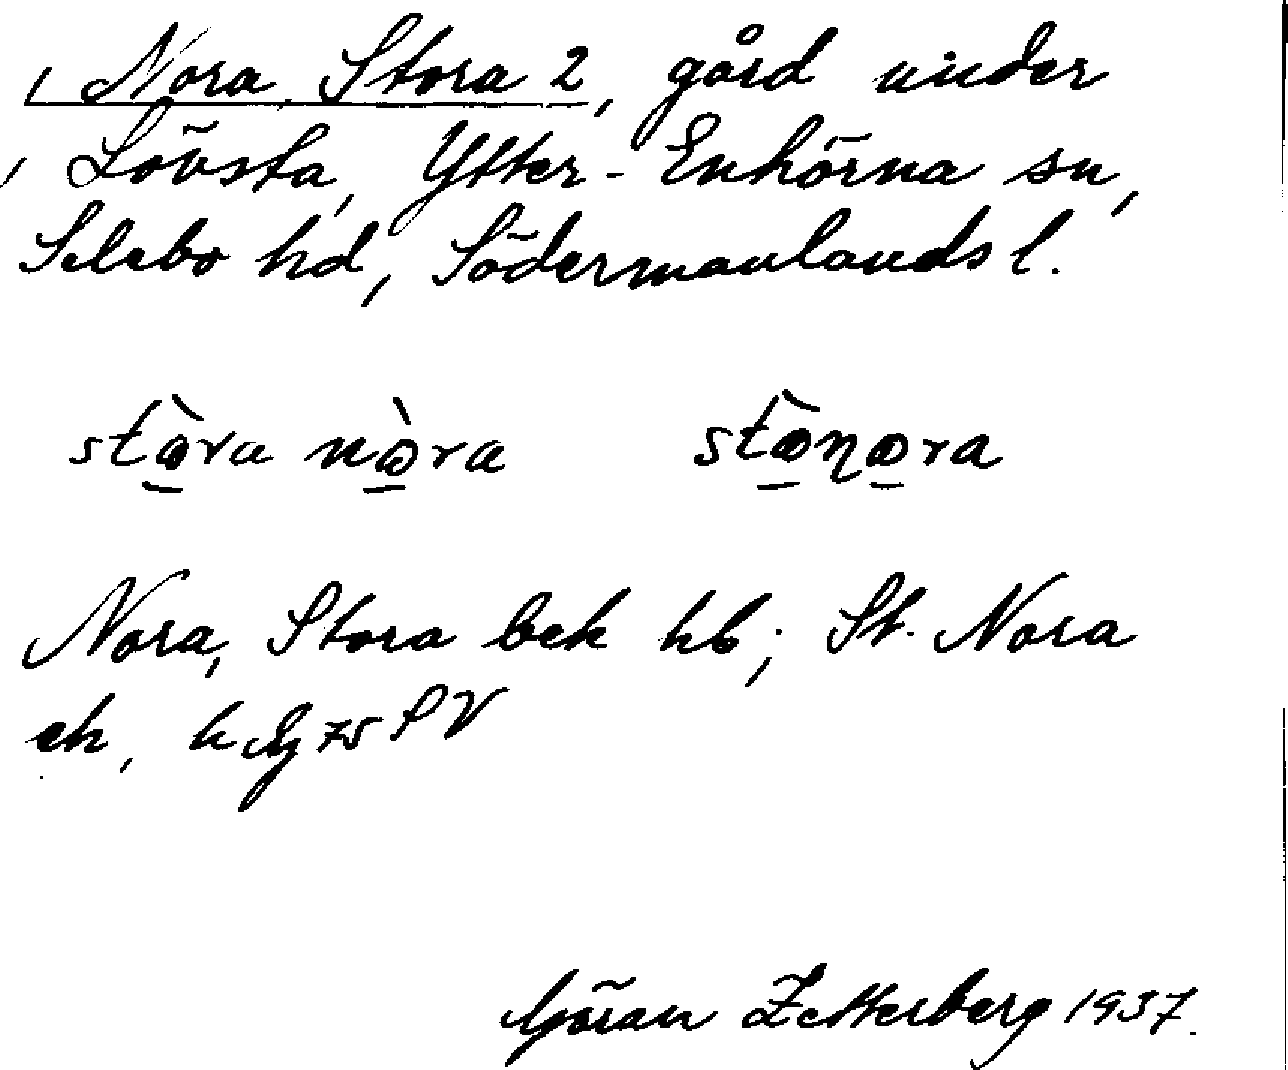 Nora, Stora 2, gård under
Lövsta, Ytter-Enhörna sn,
Selebo hd, Södermanlands l.
stò̱ra nò̱ra stò̱no̱ra
Nora, Stora bek hb; St. Nora
ek,
Göran Zetterberg 1937.